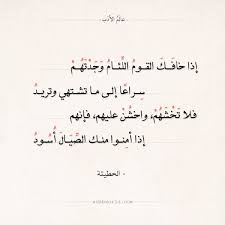 عالم الأدب
إذا خافَكَ القومُ اللِّئامُ وَجَدْتَهُمْ
سِراعًا إلى ما تشتهي وتريدُ
فلا تَخْشَهُمْ، واخشُنْ عليهم، فإنهم
إذا أمِنوا منك الصِّيَالَ أُسُودُ
- الحطيئة